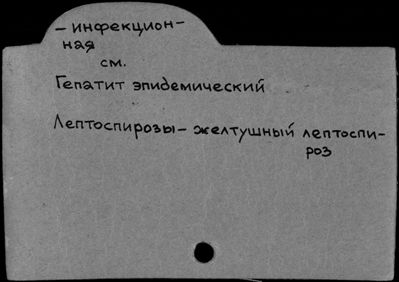 - инфекцион-
ная
см.
Гепатит эпидемический
Лептоспирозы - желтушный лептоспи-
роз